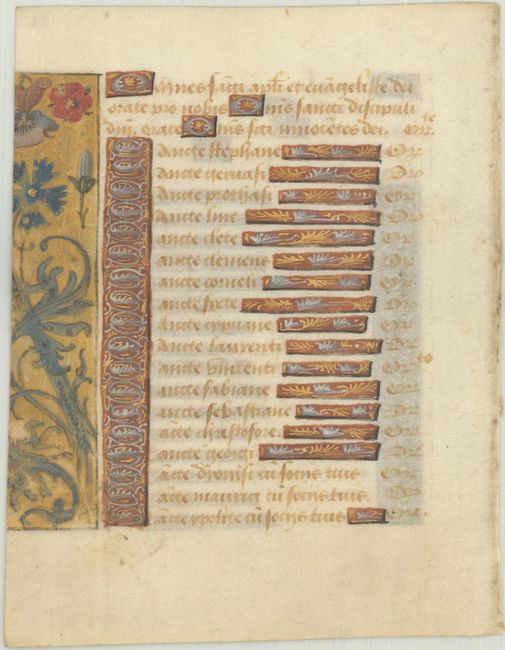 Omnes sancti apli et euangeliste dei
orate pro nobis Omnes sancti discipuli
dni. orate Omnes scti innocetes dei. Or.
Sancte stephane Or
Sancte geruasi Or
Sancte prothasi Or
Sancte line Or
Sancte clete Or
Sancte clemens Or
Sancte corneli Or
Sancte sixte Or
Sancte cypriane Or
Sancte laurenti Or
Sancte vincenti Or
Sancte fabiane Or
Sancte sebastiane Or
Sancte christofore. Or
Sancte georgi Or
Sancte dionisi cu socijs tuis
Sancte maurici cu socijs tuis.
Sancte ypolite cu socijs tuis Or.